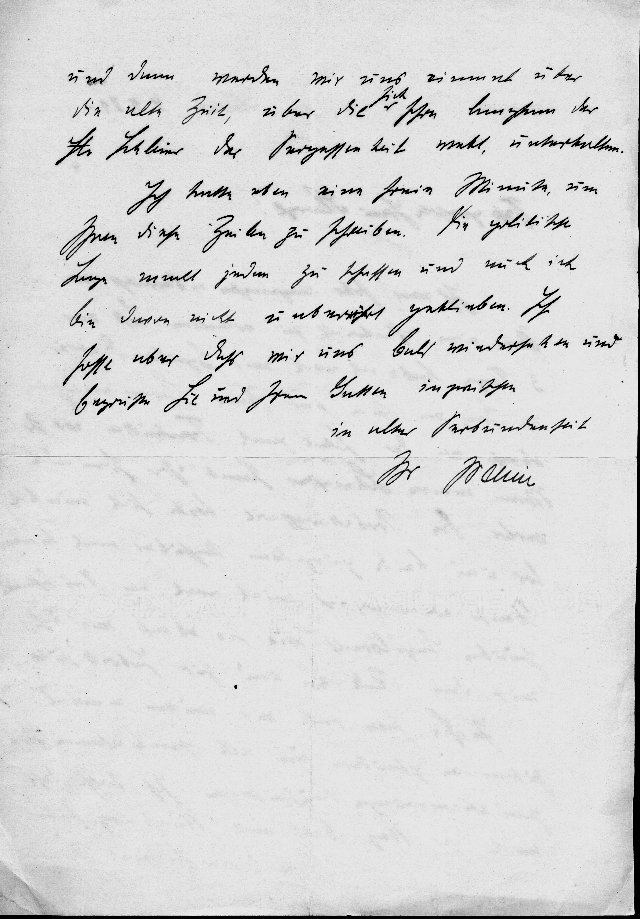 und dann werden wir uns einmal über
die alte Zeit, über die sich schon langsam der
Schleier der Vergessenheit webt, unterhalten.
Ich hatte eben eine freie Minute, um
Ihnen diese Zeilen zu schreiben. Die politische
Lage macht jedem zu schaffen und auch ich
bin davon nicht unberührt geblieben. Ich
hoffe aber dass wir uns bald wiedersehen und
begrüße Sie und Ihren Gatten inzwischen
in alter Verbundenheit
Ihr